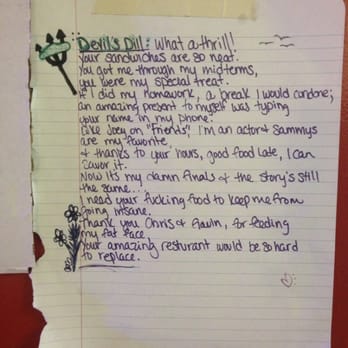 Devil's Dill: What a thrill!
Your sandwiches are so neat.
You got me through my midterms,
you were my special treat.
If I did my homework, a break I would condone;
an amazing present to myself was typing
your name in my phone.
Like Joey on "Friends" I'm an actor & sammys
are my favorite
& thanks to your hours, good food late, I can
savor it.
Now its my damn finals & the story's still
the same...
I need your fucking food to keep me from
going insane.
Thank you Chris & Gavin, for feeding
my fat face
Your amazing resturant would be so hard
to replace.